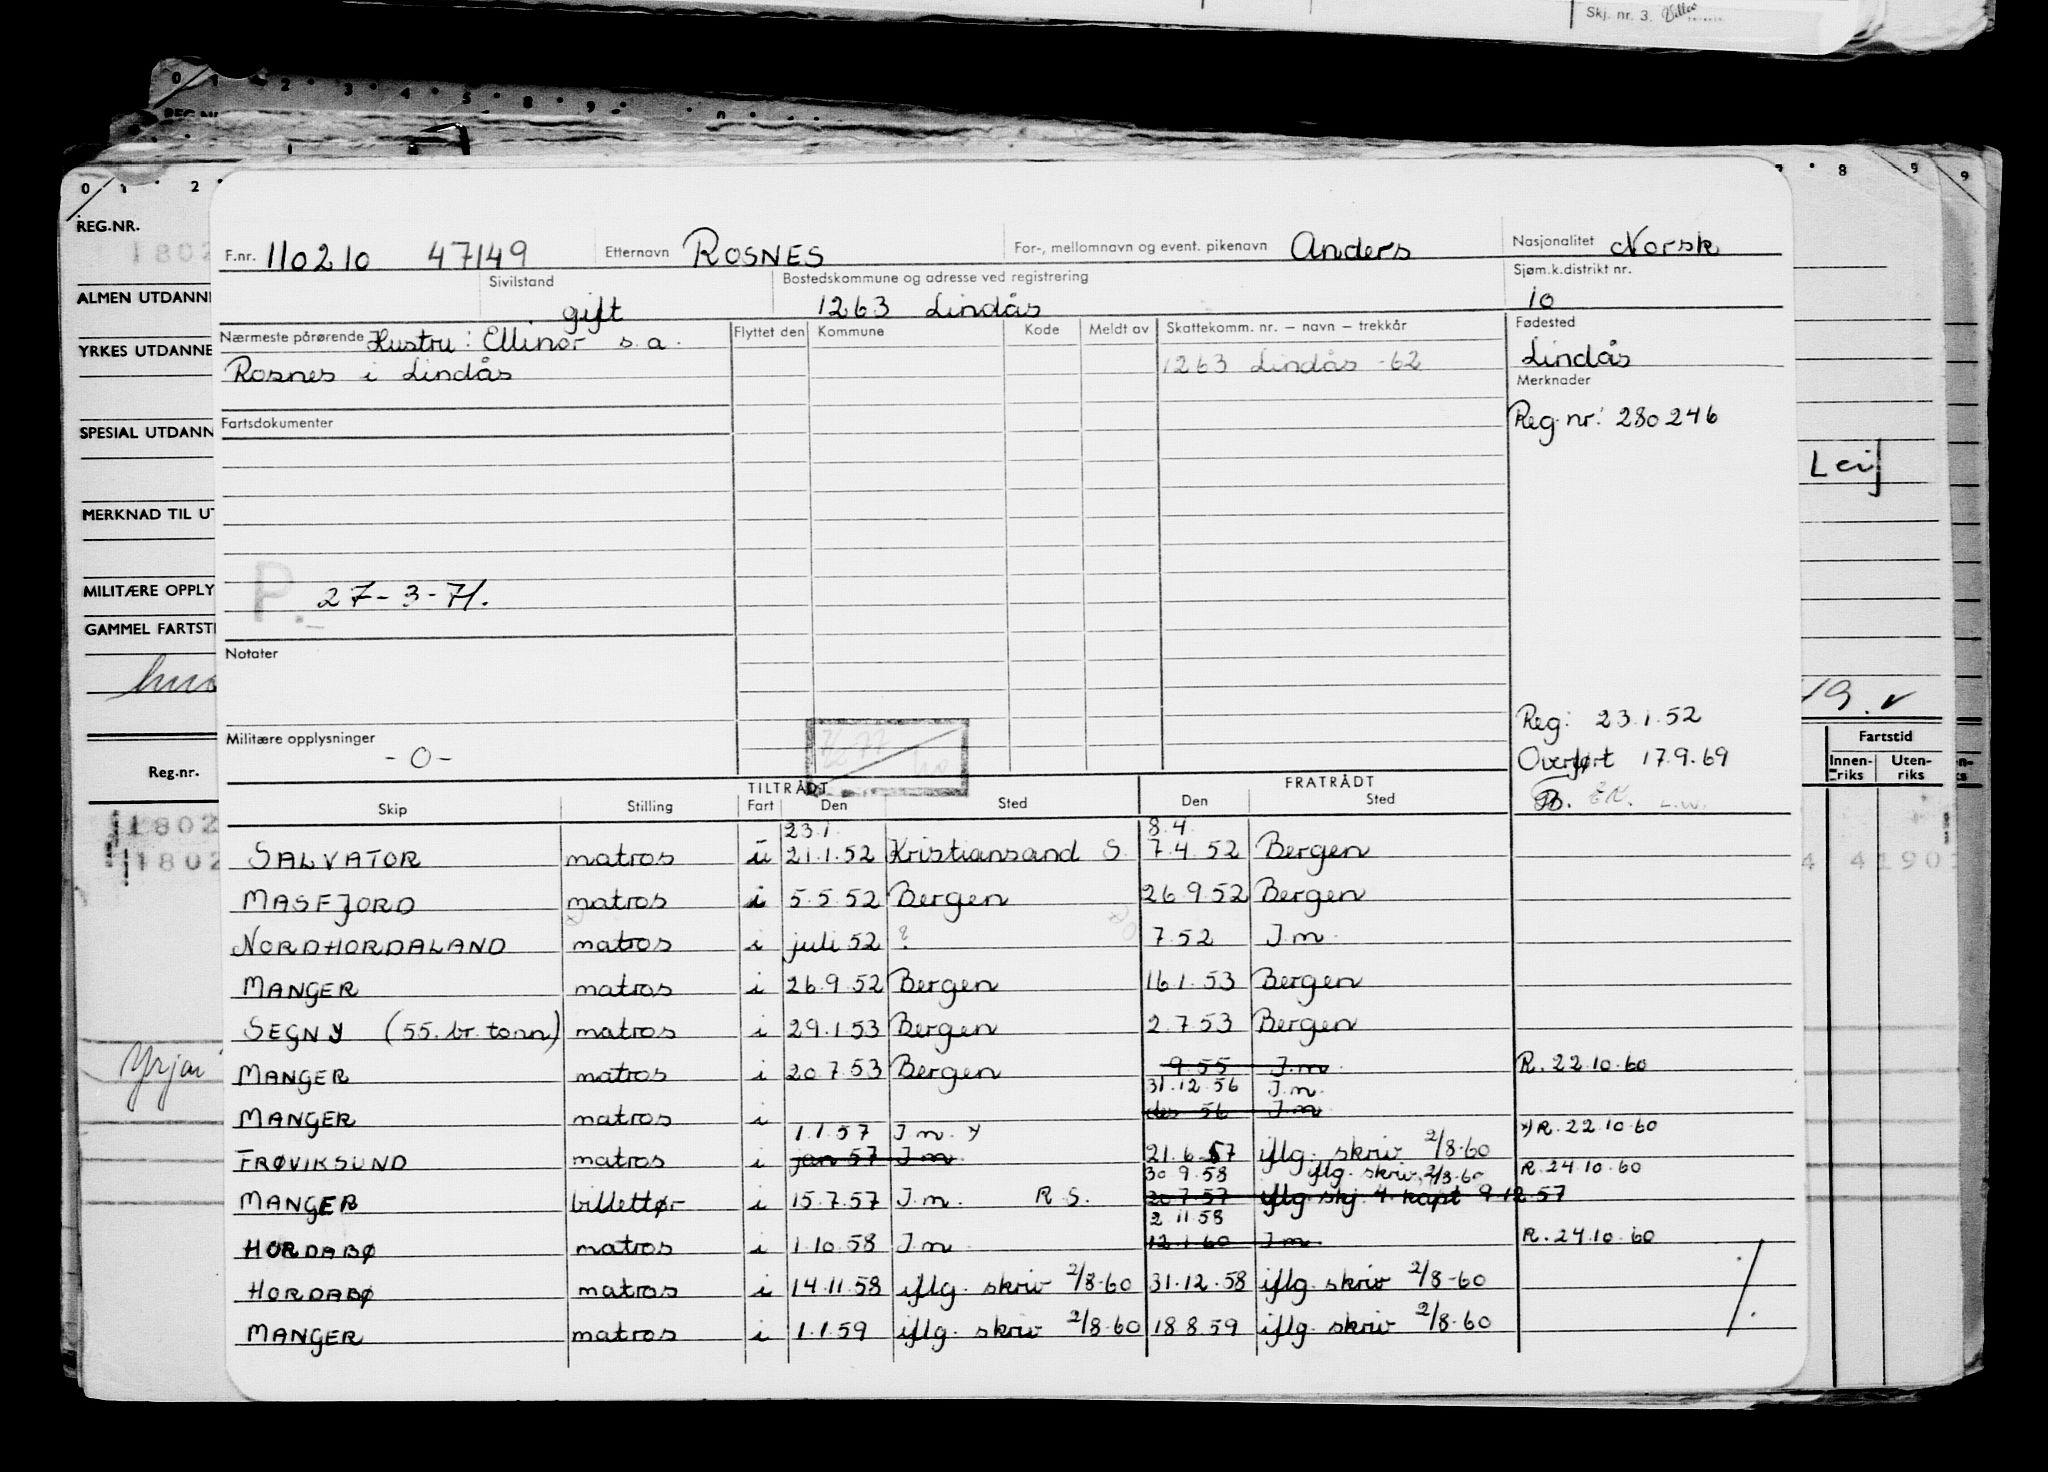 Skj. nr. 3.
0 1 2 3 4 5 8 9
0 1 2 8 9 9
REG.NR.
1802
ALMEN UTDANN
YRKES UTDANNE
SPESIAL UTDANN
MERKNAD TIL UT
MILITÆRE OPPLY
GAMMEL FARTST
Reg.nr.
1802
1802
Leif
19.
Fartstid
Innen-riks Uten-riks
F.nr. 110210 47149 Etternavn ROSNES For-, mellomnavn og event. pikenavn Anders Nasjonalitet Norsk
Sivilstand gift Bostedskommune og adresse ved registrering 1263 Lindås Sjøm.k.distrikt nr. 10
Nærmeste pårørende Hustru: Ellinor s.a. Flyttet den Kommune Kode Meldt av Skattekomm. nr. – navn – trekkår Fødested
Rosnes i Lindås 1263 Lindås -62 Lindås
Merknader
Fartsdokumenter Reg.nr: 280246
P. 27-3-71.
Notater
Reg: 23.1.52
Militære opplysninger -0- Overført 17.9.69
TILTRÅDT FRATRÅDT
Skip Stilling Fart Den Sted Den Sted
23.1. 8.4.
SALVATOR matros u 21.1.52 Kristiansand S. 7.4.52 Bergen
MASFJORD matros i 5.5.52 Bergen 26.9.52 Bergen
NORDHORDALAND matros i juli 52 ? 7.52 I.m.
MANGER matros i 26.9.52 Bergen 16.1.53 Bergen
SEGNY (55. br. tonn) matros i 29.1.53 Bergen 2.7.53 Bergen
MANGER matros i 20.7.53 Bergen 9.55 I.m. R. 22.10.60
31.12.56 I.m.
MANGER matros i des 56 I.m
1.1.57 I.m. x) x) R. 22.10.60
FRØVIKSUND matros i jan 57 I.m. 21.6.57 iflg. skriv 2/8-60
30.9.58 iflg. skriv. 2/8-60 R. 24.10.60
MANGER billettør i 15.7.57 I.m. R.S. 20.7.57 iflg. skj. 4. kapt 9.12.57
2.11.58
HORDABØ matros i 1.10.58 I.m 12.1.60 I.m R. 24.10.60
HORDABØ matros i 14.11.58 iflg. skriv 2/8-60 31.12.58 iflg. skriv 2/8-60
MANGER matros i 1.1.59 iflg. skriv 2/8-60 18.8.59 iflg. skriv 2/8-60